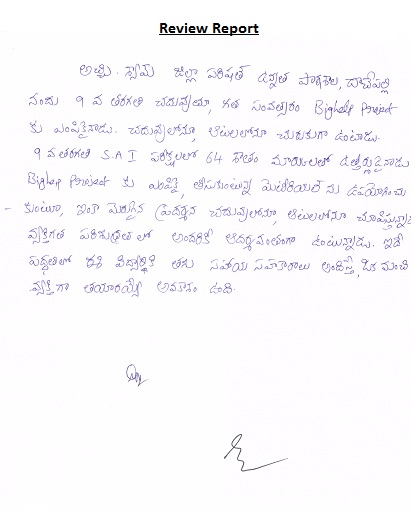 Review Report
అచ్చి. శ్యామ్ జిల్లా పరిషత్ ఉన్నత పాఠశాల, దాచేపల్లి
నందు 9 వ తరగతి చదువుతూ, గత సంవత్సరం Bighelp Project
కు ఎంపికైనాడు. చదువులోనూ, ఆటలలోనూ చురుకుగా ఉంటాడు.
9 వతరగతి S.A I పరీక్షలలో 64 శాతం మార్కులతో ఉత్తీర్ణుడైనాడు
Bighelp Project కు ఎంపికై, తీసుకుంటున్న మెటీరియల్ ను ఉపయోగించు
- కుంటూ, ఇంకా మెరుగైన ప్రదర్శన చదువులోనూ, ఆటలలోనూ చూపిస్తున్నాడు
వ్యక్తిగత పరిశుభ్రత లో అందరికీ ఆదర్శవంతంగా ఉంటున్నాడు. ఇదే
పద్ధతిలో ఈ విద్యార్థికి తగు సహాయ సహకారాలు అందిస్తే, ఒక మంచి
వ్యక్తి గా తయారయ్యే అవకాశం ఉంది.